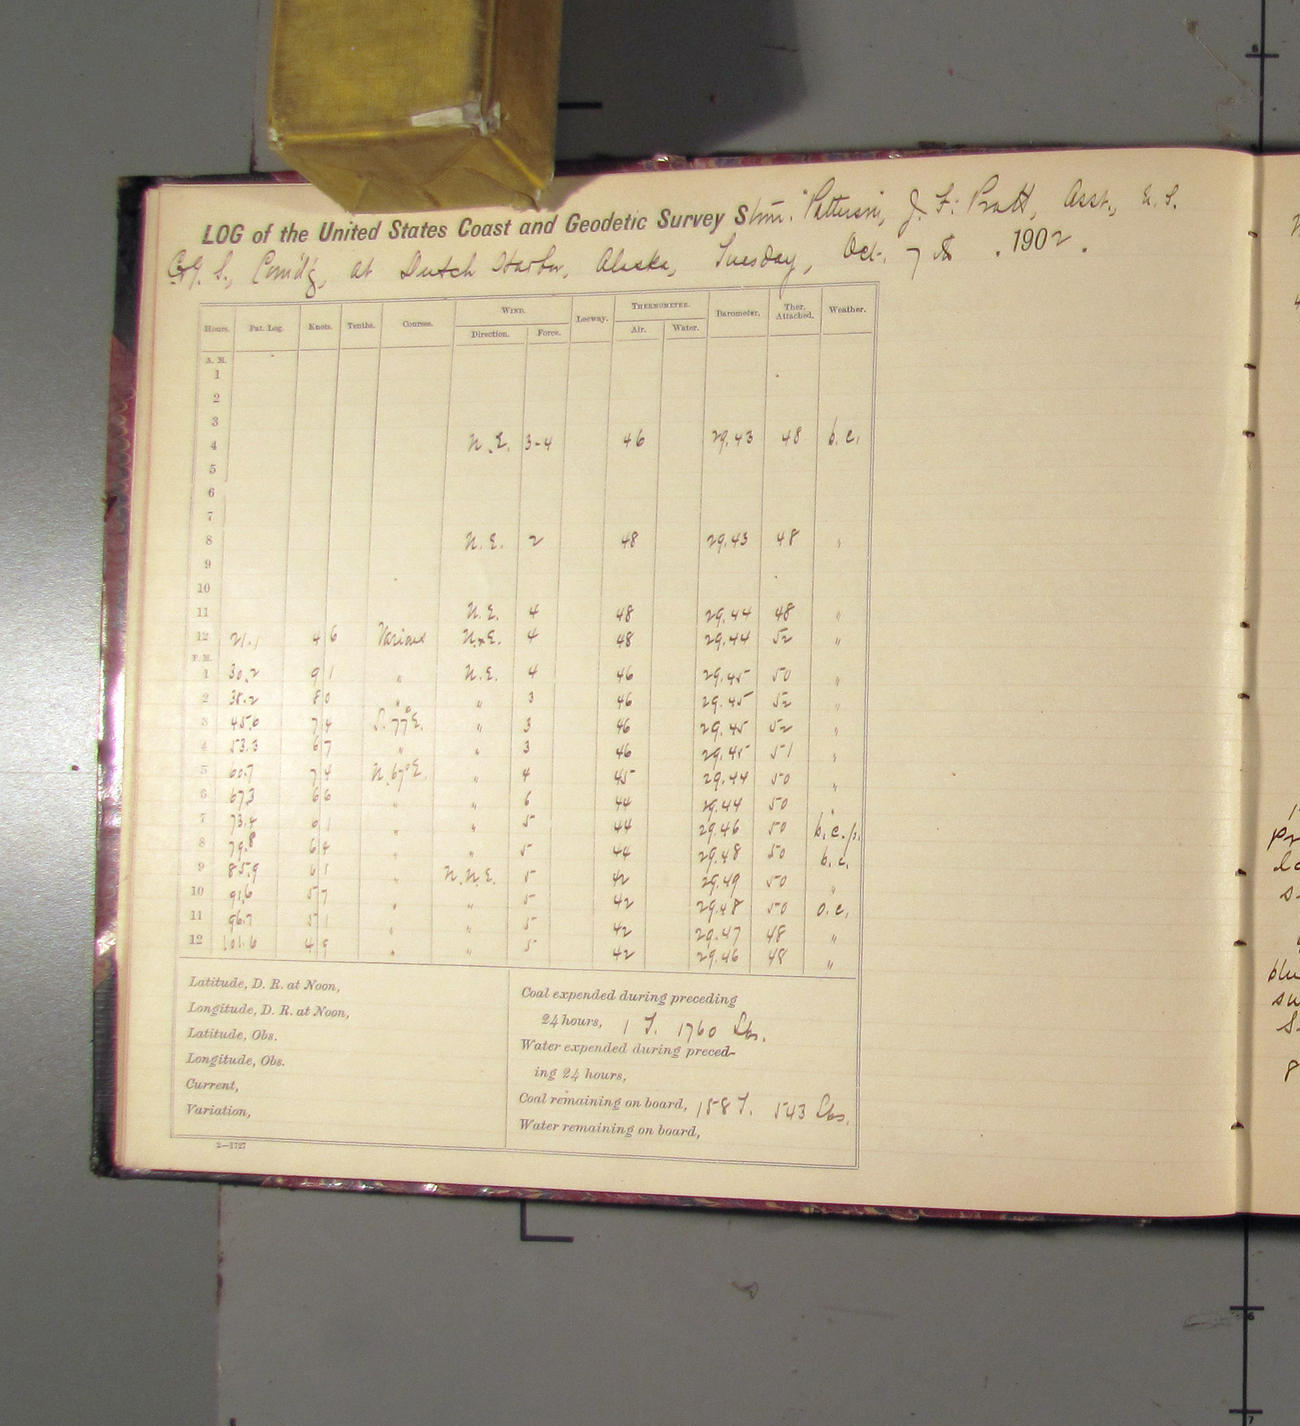 LOG of the United States Coast and Geodetic Survey Stmr. "Patterson", J. F. Pratt, Asst., U. S.
C. & G. S., Comd'g, at Dutch Harbor, Alaska, Tuesday, Oct. 7th. 1902.
Hours. Pat. Log. Knots. Tenths. Courses. WIND. Direction. Force. Leeway. THERMOMETER. Air. Water. Barometer. Ther. Attached. Weather.
A. M.
1
2
3
4 N.E. 3-4 46 29.43 48 b.c.
5
6
7
8 N.E. 2 48 29.43 48 "
9
10
11 N.E. 4 48 29.44 48 "
12 21.1 4 6 Various N.x E. 4 48 29.44 52 "
P. M.
1 30.2 9 1 " N.E. 4 46 29.45 50 "
2 38.2 8 0 " " 3 46 29.45 52 "
3 45.6 7 4 S. 77° E. " 3 46 29.45 52 "
4 53.3 6 7 " " 3 46 29.45 51 "
5 60.7 7 4 N. 67° E. " 4 45 29.44 50 "
6 67.3 6 6 " " 6 44 29.44 50 "
7 73.4 6 1 " " 5 44 29.46 50 b.c.p.
8 79.8 6 4 " " 5 44 29.48 50 b.c.
9 85.9 6 1 " N.N.E. 5 42 29.49 50 "
10 91.6 5 7 " " 5 42 29.48 50 o.c.
11 96.7 5 1 " " 5 42 29.47 48 "
12 101.6 4 9 " " 5 42 29.46 48 "
Latitude, D. R. at Noon,
Longitude, D. R. at Noon,
Latitude, Obs.
Longitude, Obs.
Current,
Variation,
Coal expended during preceding
24 hours, 1 T. 1760 Lbs.
Water expended during preced-
ing 24 hours,
Coal remaining on board, 158 T. 543 Lbs.
Water remaining on board,
2—1727